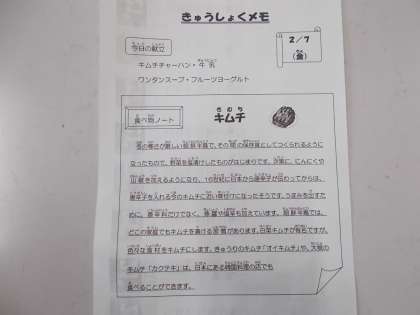 きゅうしょくメモ
今日の献立
2/7
(金)
キムチチャーハン・牛乳
ワンタンスープ・フルーツヨーグルト
食べ物ノート
キムチ
冬の寒さが厳しい朝鮮半島で、その間の保存食としてつくられるように
なったもので、野菜を塩漬けしたものがはじまりです。次第に、にんにくや
山椒を加えるようになり、16世紀に日本から唐辛子が伝わってからは、
唐辛子を入れる今のキムチに近い漬け方になったそうです。うまみを出すた
めに、唐辛子だけでなく、も加えています。朝鮮半島では、
どこの家庭でもキムチを漬ける習慣があります。白菜キムチが有名ですが、
色々な食材をキムチにします。きゅうりのキムチ「オイキムチ」や、大根の
キムチ「カクテキ」は、日本にある韓国料理の店でも
食べることができます。